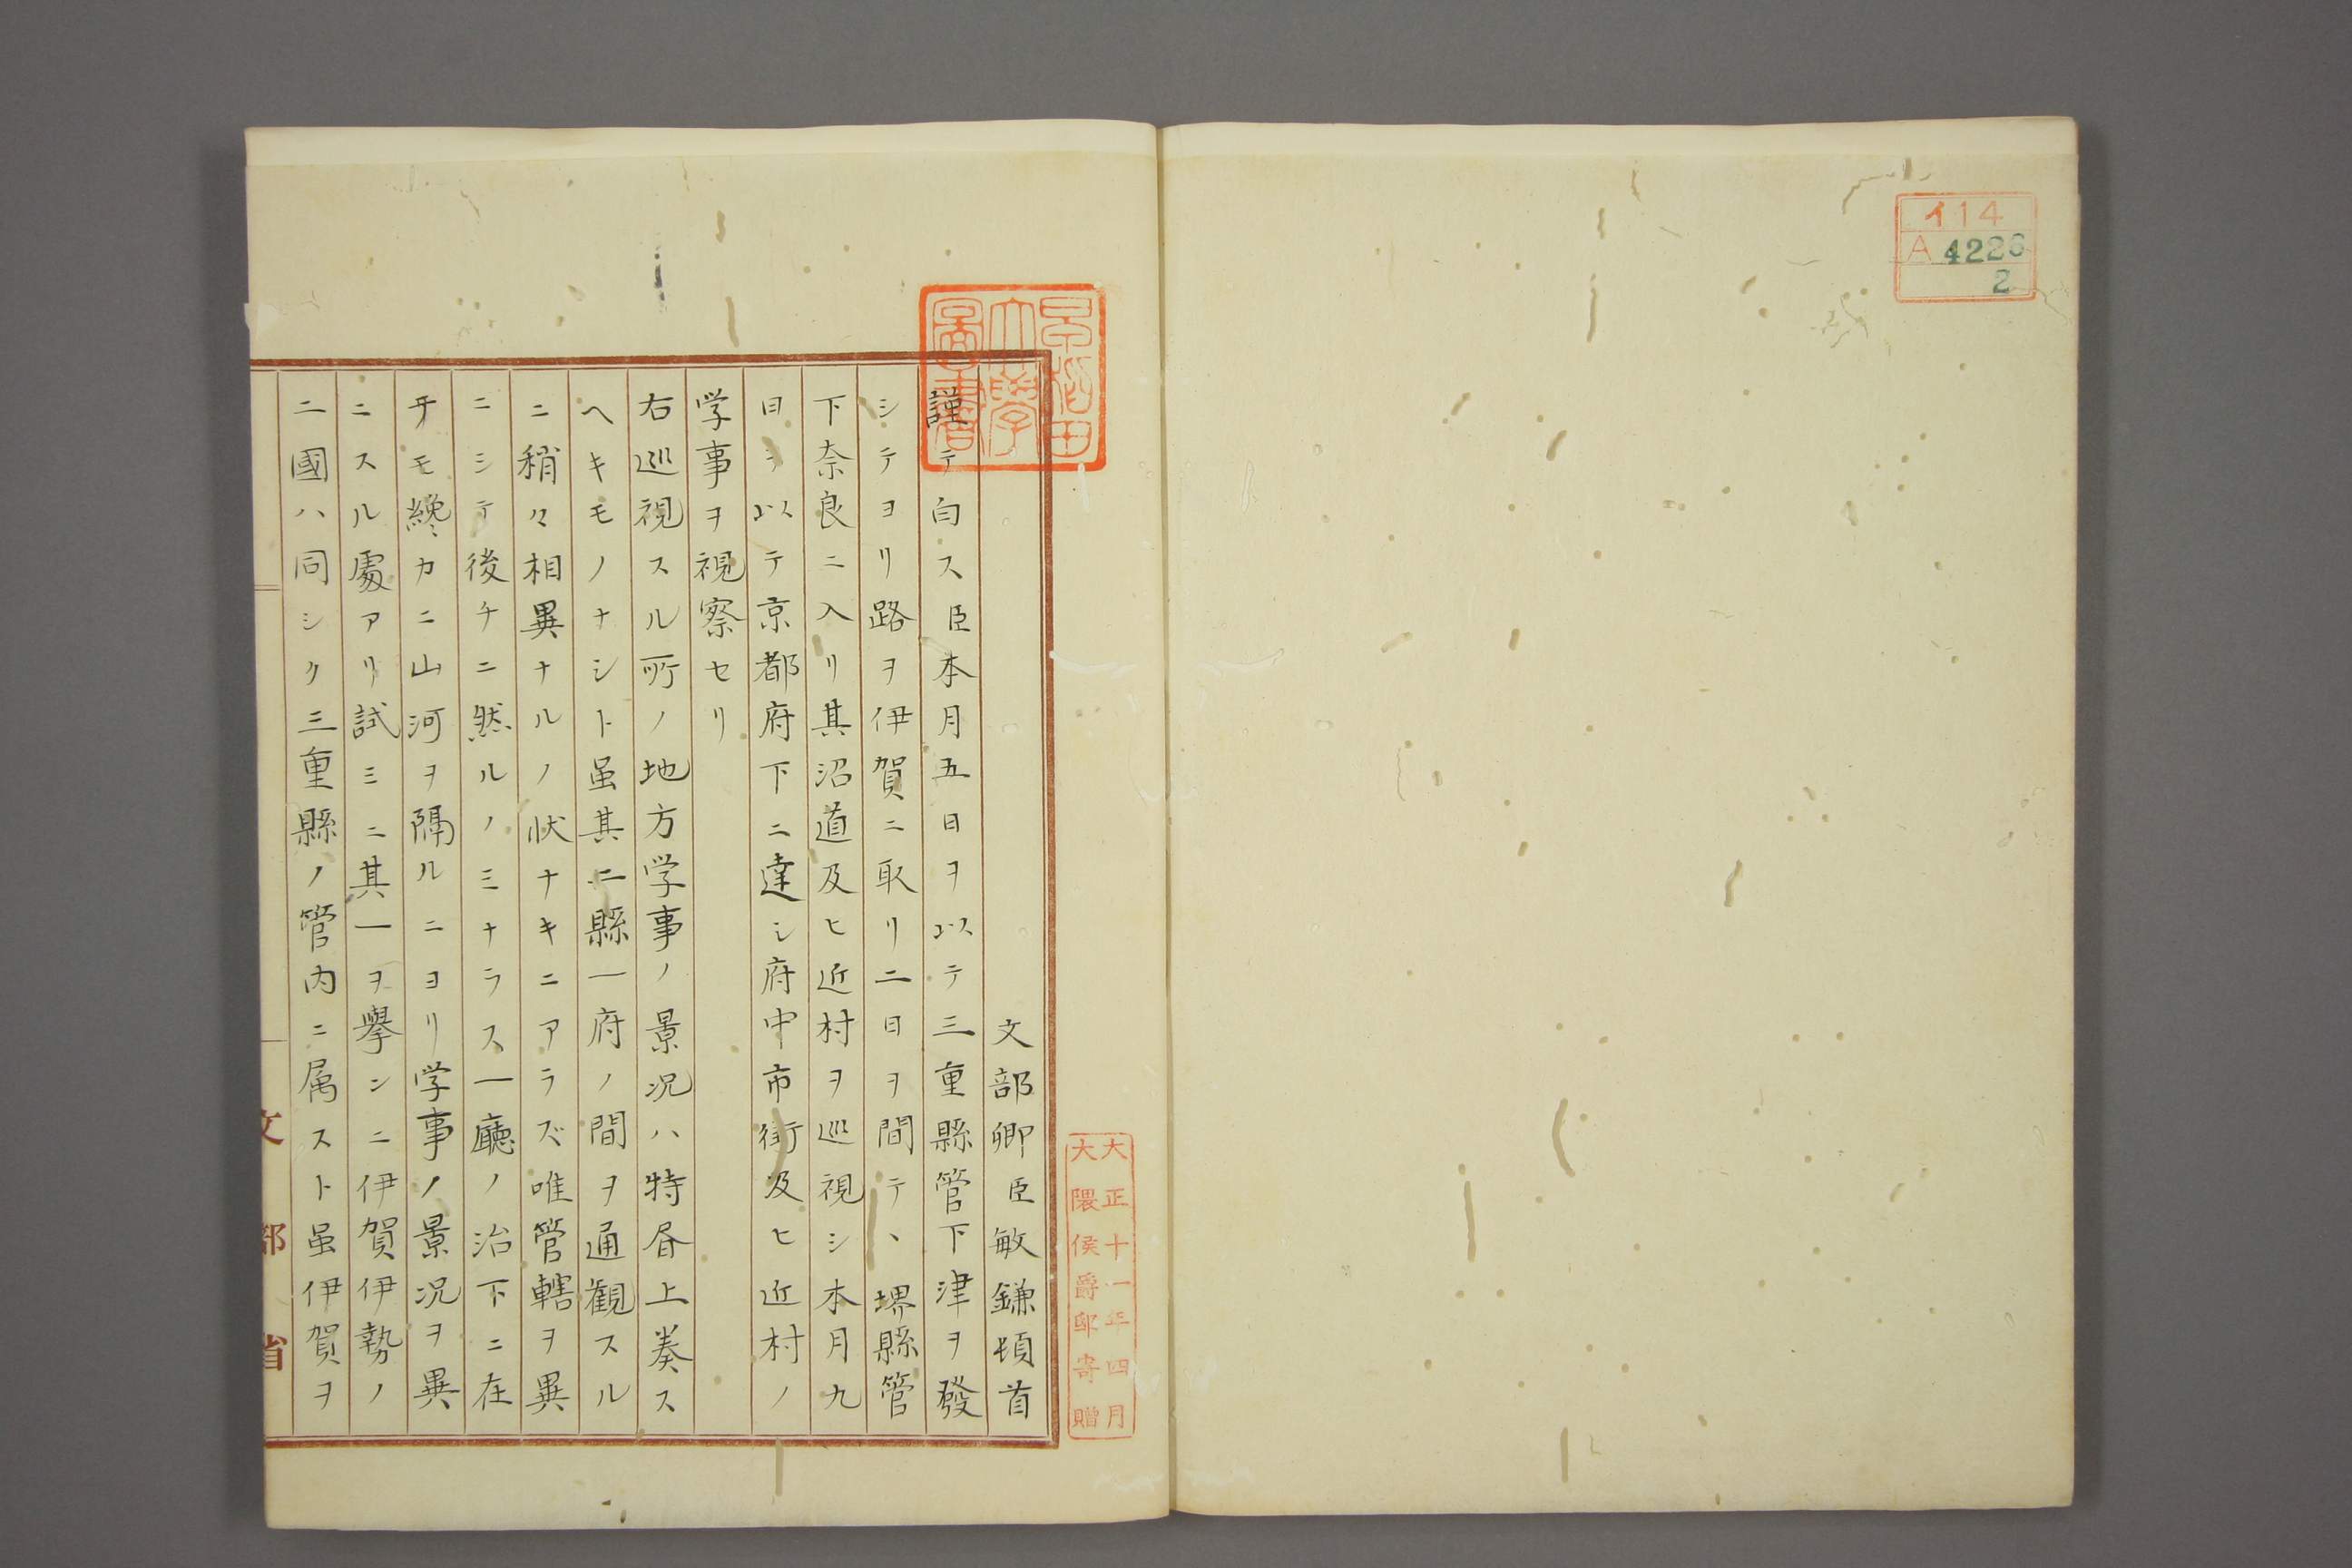 イ14
A 4226
2
早稲田
大學
圖書
大正十一年四月
大隈侯爵邸寄贈
文部卿臣敏鎌頓首
謹テ白ス臣本月五日ヲ以テ三重縣管下津ヲ發
シテヨリ路ヲ伊賀ニ取リ二日ヲ間テ、堺縣管
下奈良ニ入リ其沿道及ヒ近村ヲ巡視シ本月九
日ヲ以テ京都府下ニ達シ府中市街及ヒ近村ノ
学事ヲ視察セリ
右巡視スル所ノ地方学事ノ景况ハ特昏上奏ス
ヘキモノナシト虽其二縣一府ノ間ヲ通観スル
ニ稍々相異ナルノ状ナキニアラズ唯管轄ヲ異
ニシテ後チニ然ルノミナラス一廳ノ治下ニ在
テモ纔カニ山河ヲ隔ルニヨリ学事ノ景况ヲ異
ニスル處アリ試ミニ其一ヲ擧ンニ伊賀伊勢ノ
二國ハ同シク三重縣ノ管内ニ属スト虽伊賀ヲ
文部省